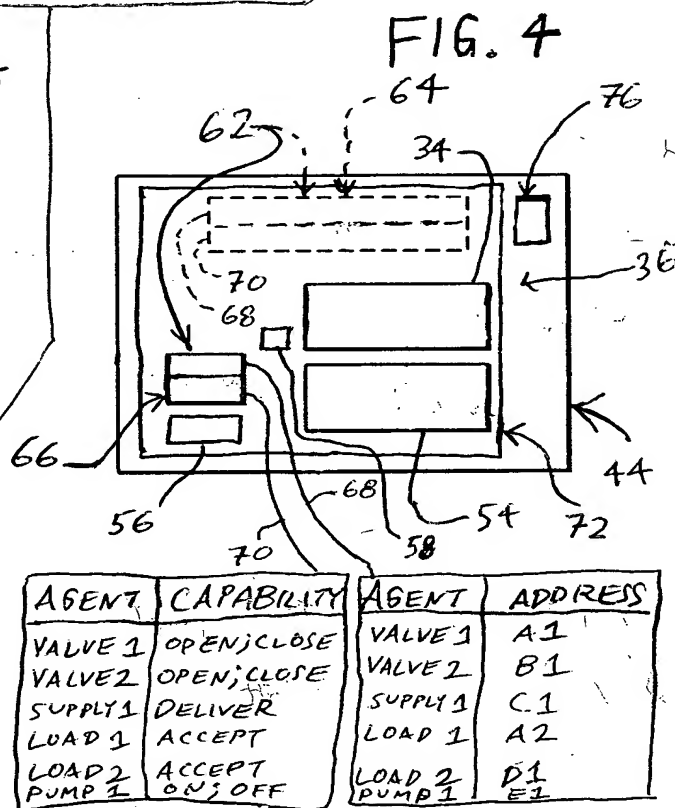 FIG. 4
64
76
62
34
36
70
68
66
44
56
68
54
72
70
58
AGENT CAPABILITY
VALVE 1 OPEN; CLOSE
VALVE 2 OPEN; CLOSE
SUPPLY 1 DELIVER
LOAD 1 ACCEPT
LOAD 2 ACCEPT
PUMP 1 ON; OFF
AGENT ADDRESS
VALVE 1 A1
VALVE 2 B1
SUPPLY 1 C1
LOAD 1 A2
LOAD 2 D1
PUMP 1 E1